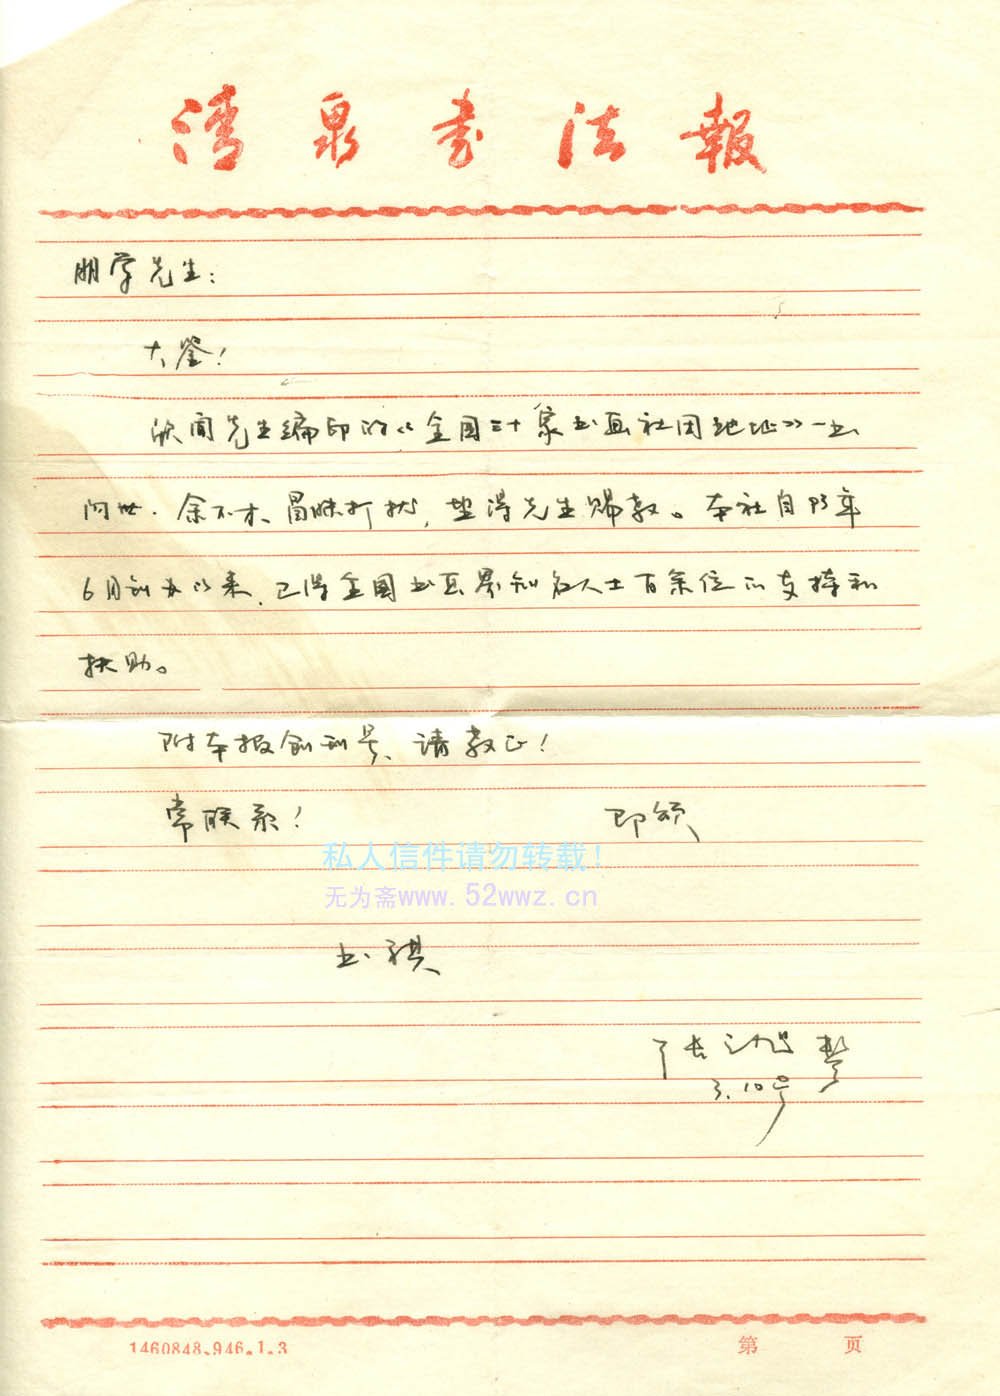 清泉书法報
明学先生：
大鉴！
欣闻先生编印的《全国三十家书画社团地址》一书
问世，余不才、冒昧打扰，望得先生赐教。本社自93年
6月创办以来，已得全国书画界知名人士百余位的支持和
扶助。
附本报创刊号、请教正！
常联系！ 即颂
私人信件请勿转载！
无为斋www.52wwz.cn
书祺
张旭
3.10号
1460848.946.1.3 第 页